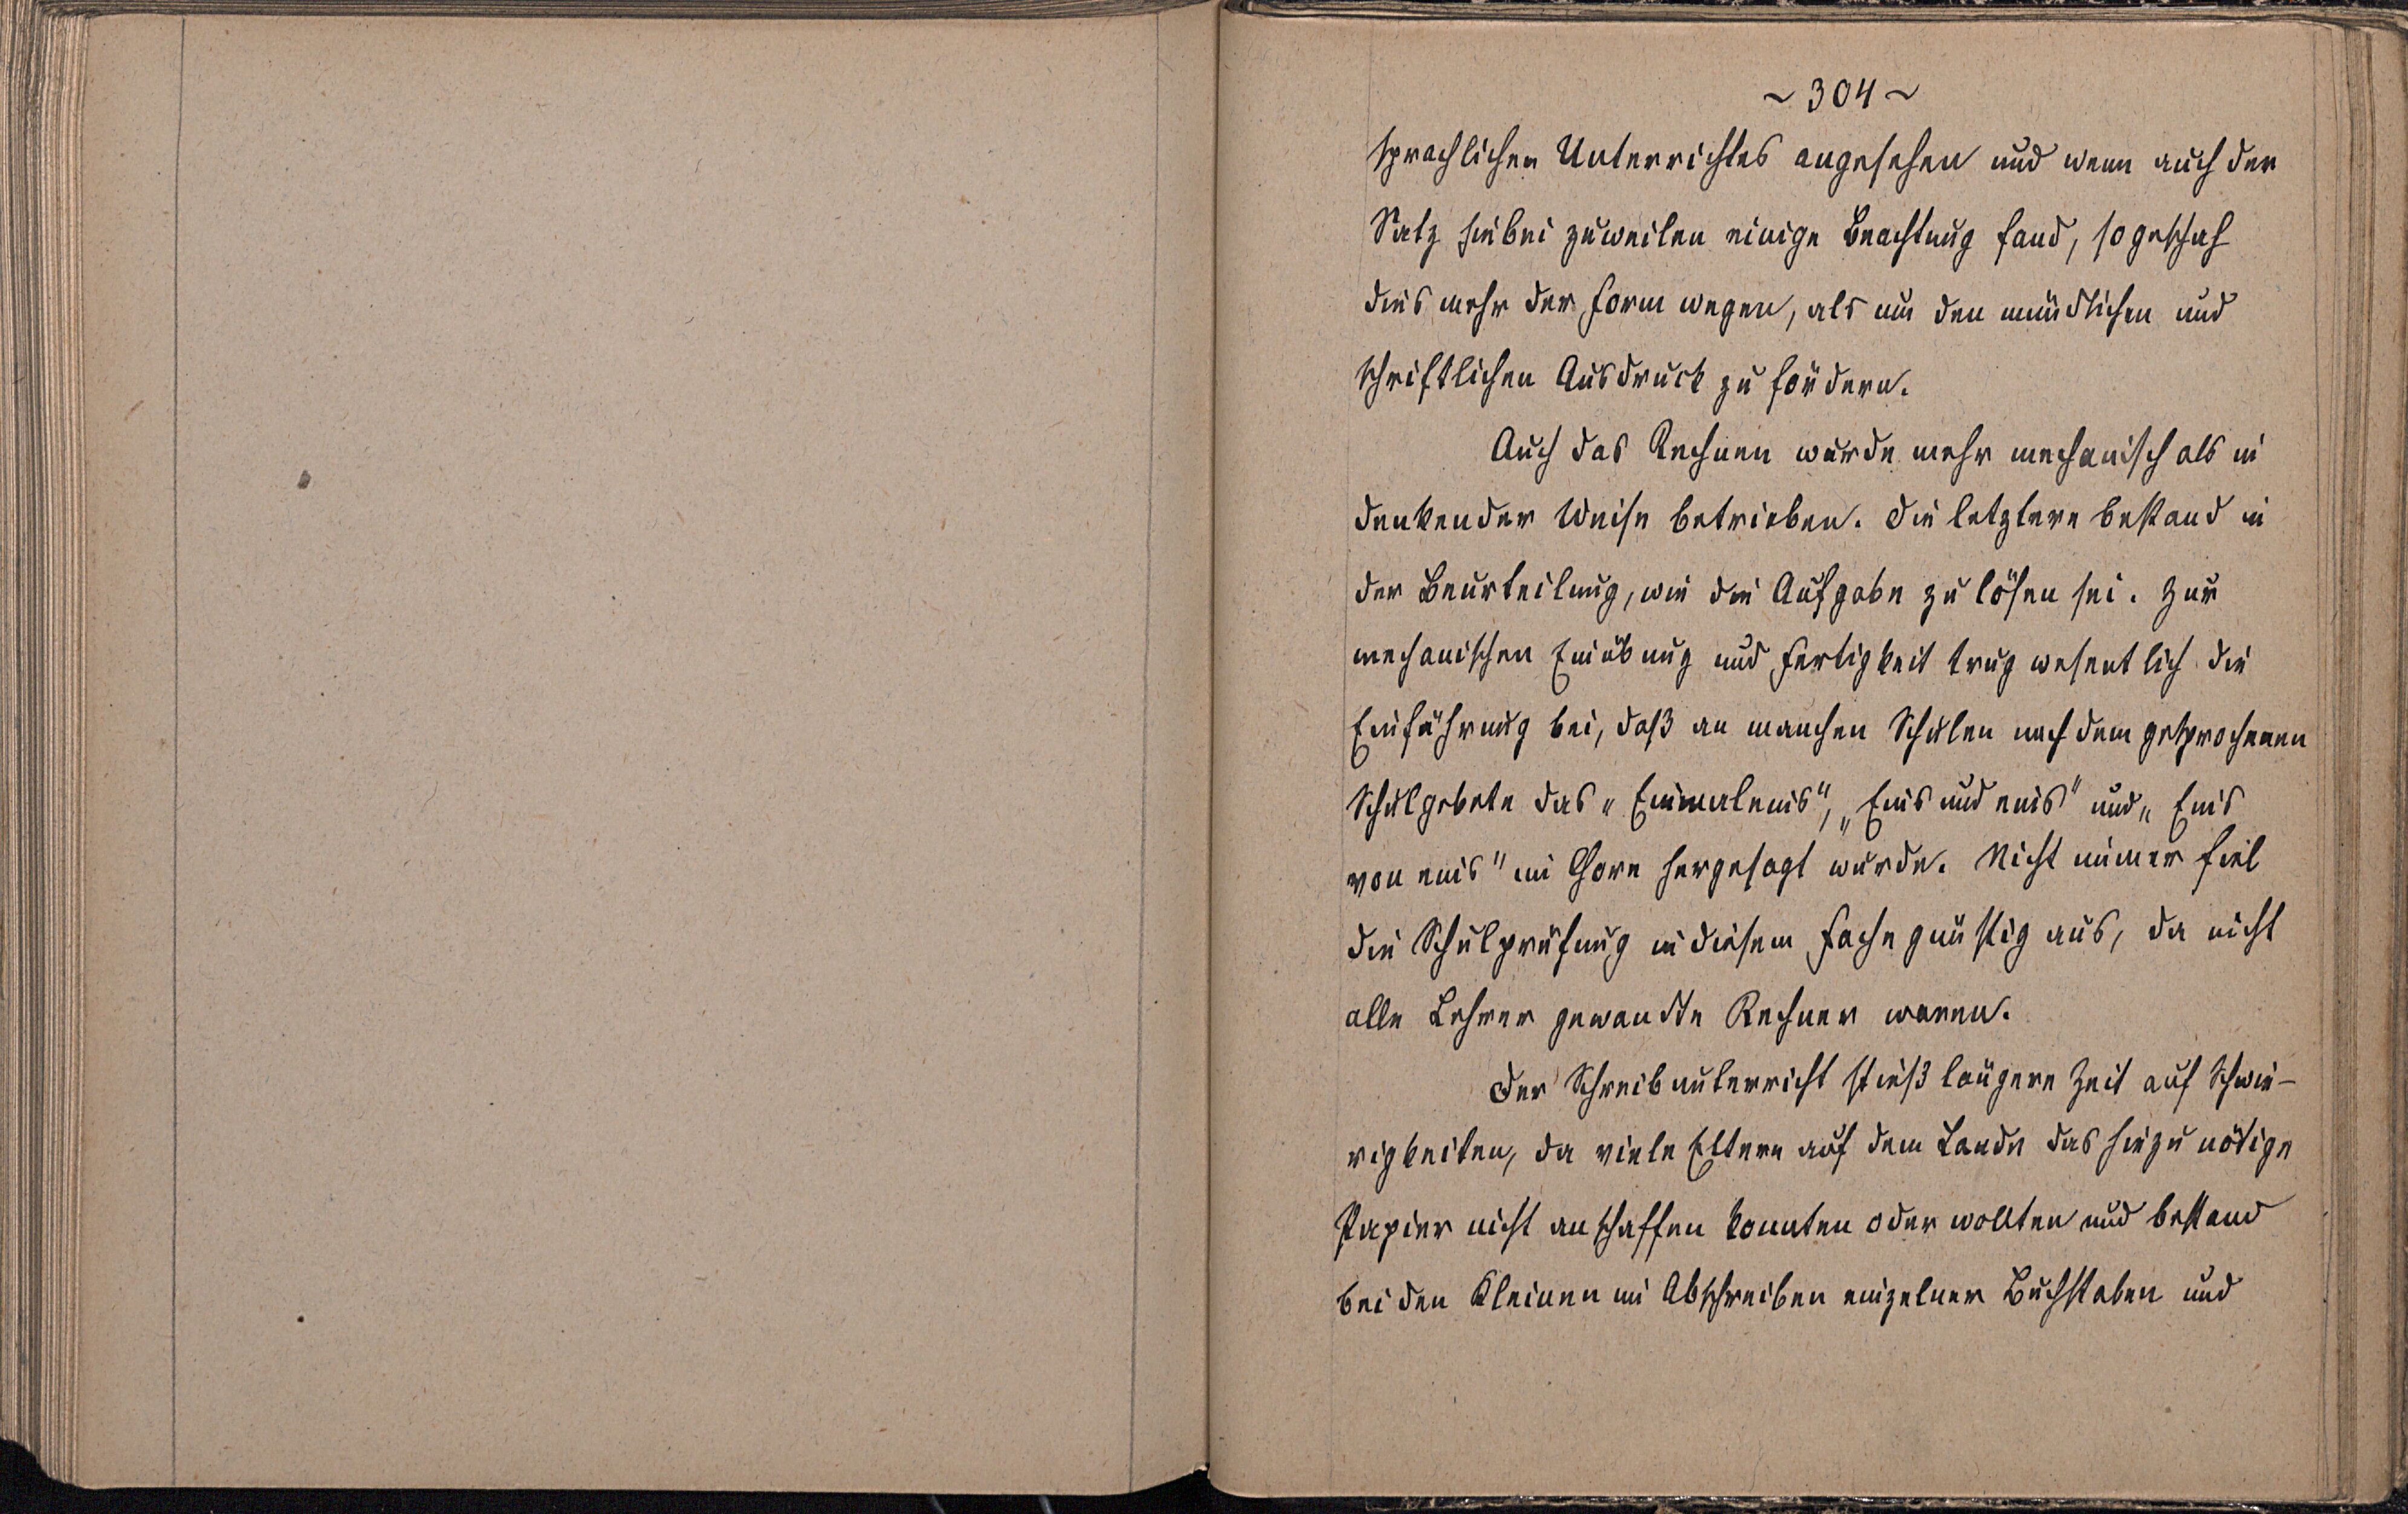 ~ 304 ~
sprachlichen Unterrichtes angesehen und wenn auch der
Satz hiebei zuweilen einige Beachtung fand, so geschah
dies mehr der Form wegen, als um den mündlichen und
schriftlichen Ausdruck zu fördern.
Auch das Rechnen wurde mehr mechanisch als in
denkender Weise betrieben. Die letztere bestand in
der Beurteilung, wie die Aufgabe zu lösen sei. Zur
mechanischen Einübung und Fertigkeit trug wesentlich die
Einführung bei, daß an manchen Schulen nach dem gesprochenen
Schulgebete das „Einmaleins", „Eins und eins" und „Eins
von eins" im Chore hergesagt wurde. Nicht immer fiel
die Schulprüfung in diesem Fache günstig aus, da nicht
alle Lehrer gewandte Rechner waren.
Der Schreibunterricht stieß längere Zeit auf Schwie-
rigkeiten, da viele Eltern auf dem Lande das hiezu nötige
Papier nicht anschaffen konnten oder wollten und bestand
bei den Kleinen im Abschreiben einzelner Buchstaben und